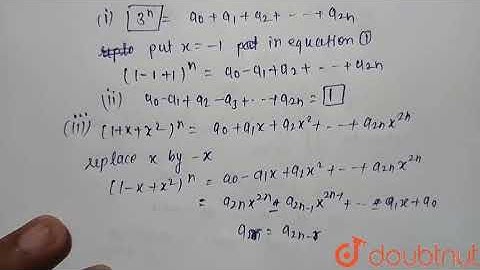 (i) 3ⁿ = a0 + a1 + a2 + - - + a2n
put x = -1 in equation ①
(1-1+1)ⁿ = a0 - a1 + a2 + - - + a2n
(ii) a0 - a1 + a2 - a3 + - - + a2n = 1
(iii) (1+x+x²)ⁿ = a0 + a1x + a2x² + - - + a2n x²ⁿ
replace x by -x
(1-x+x²)ⁿ = a0 - a1x + a2x² + - - + a2n x²ⁿ
= a2n x²ⁿ - a2n-1 x²ⁿ⁻¹ + - - - a1x + a0
ar = a2n-r
doubtnut